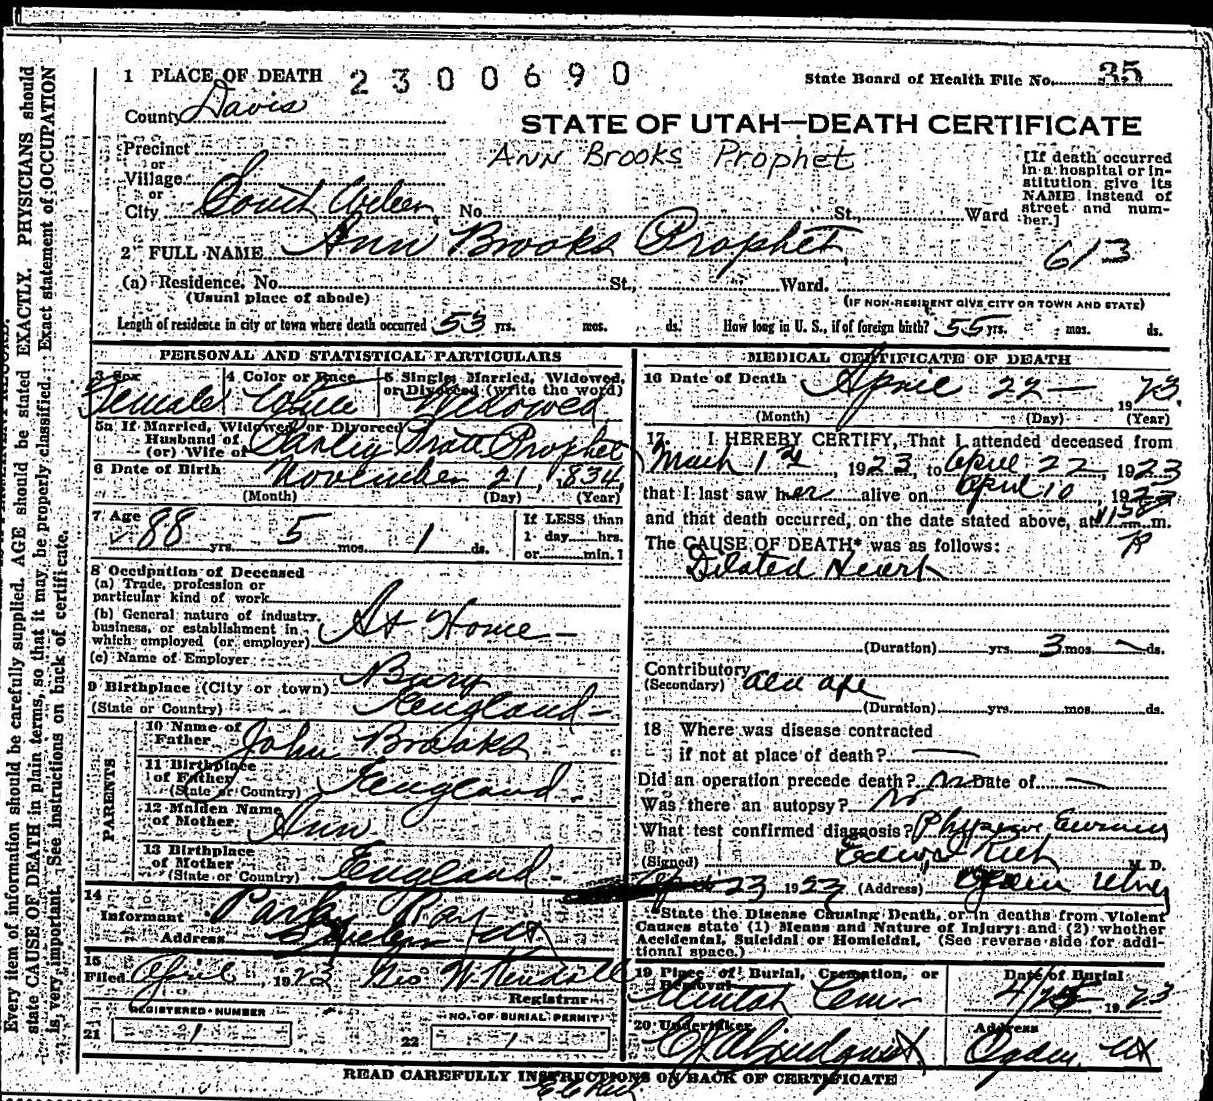 1 PLACE OF DEATH 2300690 State Board of Health File No. 35
County Davis
STATE OF UTAH—DEATH CERTIFICATE
Ann Brooks Prophet
Precinct
or
Village
or
City South Weber No. St., Ward
[If death occurred
in a hospital or in-
stitution give its
NAME instead of
street and num-
ber.]
2 FULL NAME Ann Brooks Prophet
613
(a) Residence. No. St., Ward.
(Usual place of abode) (IF NON-RESIDENT GIVE CITY OR TOWN AND STATE)
Length of residence in city or town where death occurred 53 yrs. mos. ds. How long in U. S., if of foreign birth? 55 yrs. mos. ds.
PERSONAL AND STATISTICAL PARTICULARS
3 Sex 4 Color or Race 5 Single, Married, Widowed,
or Divorced (write the word)
Female White Widowed
5a If Married, Widowed or Divorced
Husband of
(or) Wife of Parley Pratt Prophet
6 Date of Birth November 21, 1834
(Month) (Day) (Year)
7 Age 88 yrs. 5 mos. 1 ds.
If LESS than
1 day hrs.
or min. ?
8 Occupation of Deceased
(a) Trade, profession or
particular kind of work
(b) General nature of industry,
business, or establishment in
which employed (or employer) At Home —
(c) Name of Employer
9 Birthplace (City or town) Bury
(State or Country) England —
PARENTS
10 Name of
Father John Brooks
11 Birthplace
of Father
(State or Country) England —
12 Maiden Name
of Mother Ann
13 Birthplace
of Mother
(State or Country) England —
14
Informant Parley
Address
15
Filed April 1923 Geo W Kendell
Registrar
REGISTERED NUMBER NO. OF BURIAL PERMIT
21 1 22 1
MEDICAL CERTIFICATE OF DEATH
16 Date of Death April 22 — 1923.
(Month) (Day) (Year)
17 I HEREBY CERTIFY, That I attended deceased from
March 1st, 1923, to April 22, 1923
that I last saw her alive on April 10, 1923
and that death occurred, on the date stated above, at m.
The CAUSE OF DEATH* was as follows:
Dilated Heart
(Duration) yrs. 3 mos. — ds.
Contributory
(Secondary) old age
(Duration) yrs. mos. ds.
18 Where was disease contracted
if not at place of death? —
Did an operation precede death? no Date of —
Was there an autopsy? No
What test confirmed diagnosis?
(Signed) Edward Rich M. D.
April 23 1923 (Address) Ogden Utah
*State the Disease Causing Death, or in deaths from Violent
Causes state (1) Means and Nature of Injury; and (2) whether
Accidental, Suicidal or Homicidal. (See reverse side for addi-
tional space.)
19 Place of Burial, Cremation, or
Removal Date of Burial
Uintah Cem. 4/25 1923
20 Undertaker Address
Lindquist Ogden, Ut
READ CAREFULLY INSTRUCTIONS ON BACK OF CERTIFICATE
Every item of information should be carefully supplied. AGE should be stated EXACTLY. PHYSICIANS should
state CAUSE OF DEATH in plain terms, so that it may be properly classified. Exact statement of OCCUPATION
is very important. See instructions on back of certificate.